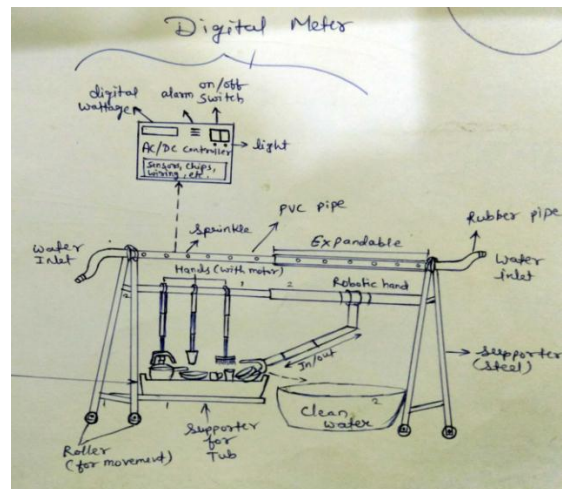 Digital Meter
digital
wattage
alarm
on/off
switch
AC/DC controller
light
Sensors, chips,
wiring, etc.
PVC pipe
Sprinkle
Expandable
Rubber pipe
Water
Inlet
Water
inlet
Hands (with motor)
1
2
Robotic hand
In/out
Supporter
(Steel)
Clean
water
2
1
1
Roller
(for movement)
Supporter
for
Tub